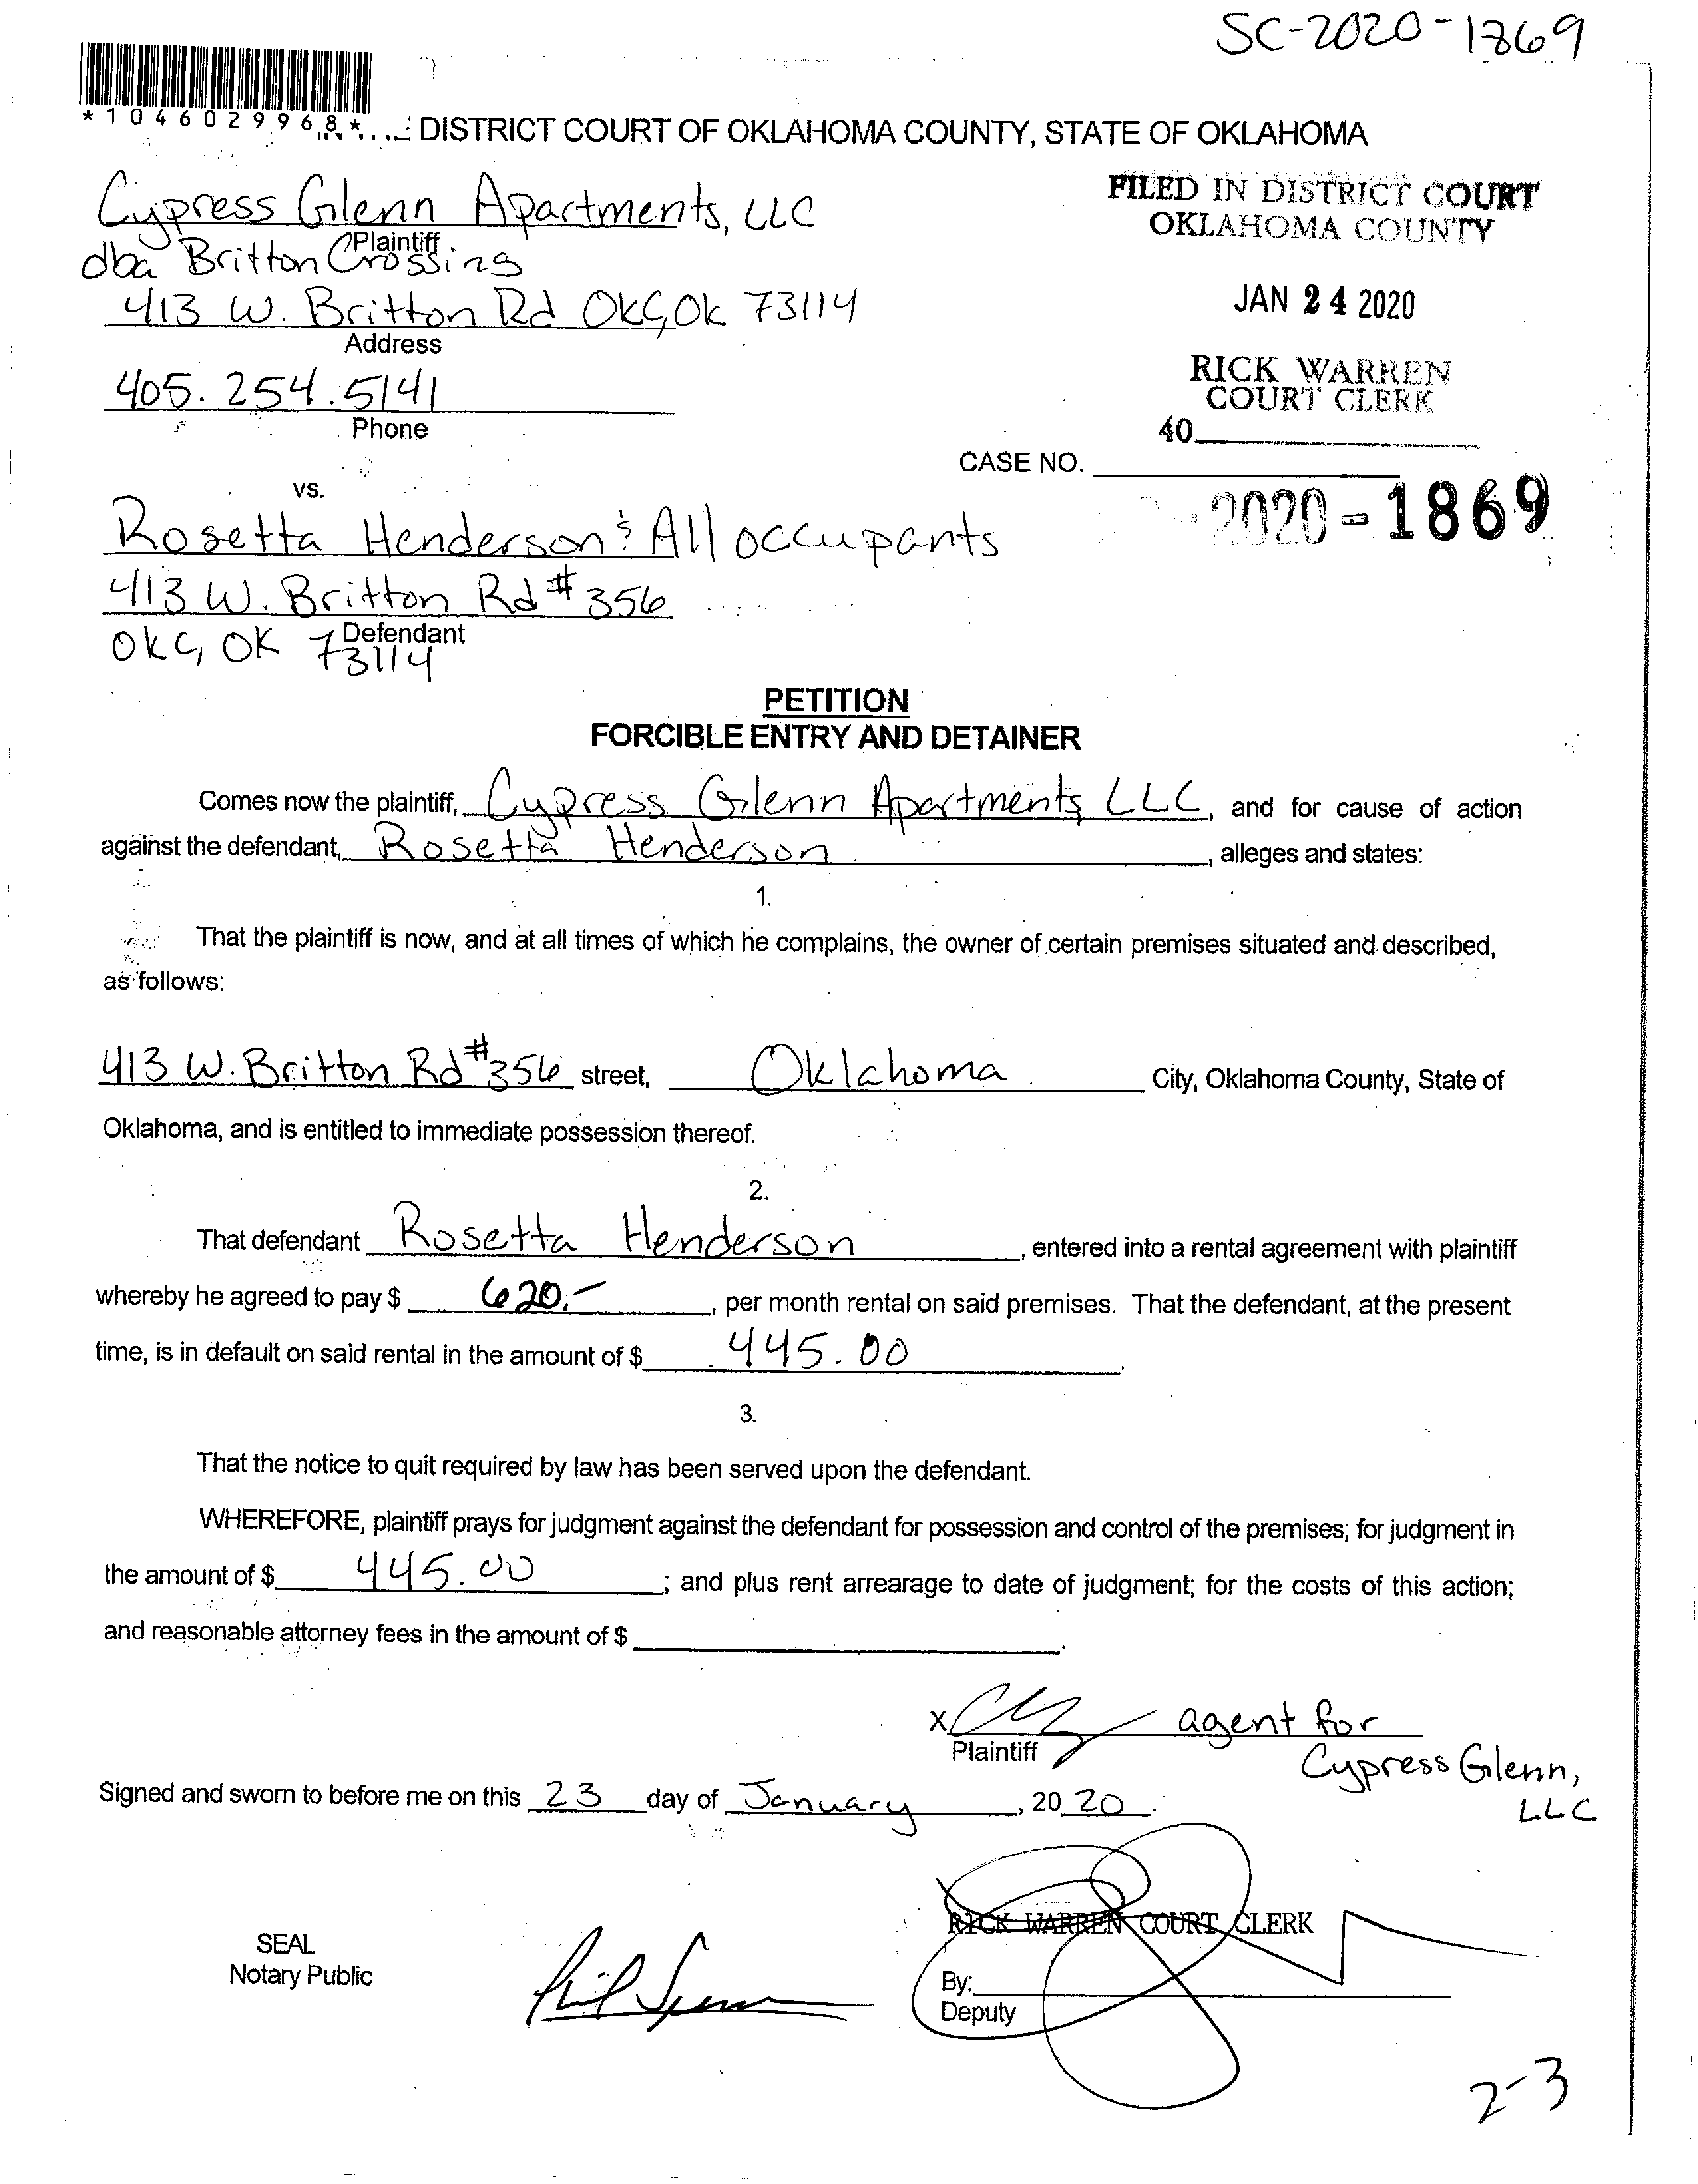 SC-2020-1869
*1046029968*
DISTRICT COURT OF OKLAHOMA COUNTY, STATE OF OKLAHOMA
Cypress Glenn Apartments, LLC
Plaintiff
dba Britton Crossing
413 W. Britton Rd OKC, OK 73114
Address
405.254.5141
Phone
FILED IN DISTRICT COURT
OKLAHOMA COUNTY
JAN 24 2020
RICK WARREN
COURT CLERK
40
CASE NO.
2020-1869
vs.
Rosetta Henderson & All occupants
413 W. Britton Rd #356
Defendant
OKC, OK 73114
PETITION
FORCIBLE ENTRY AND DETAINER
Comes now the plaintiff, Cypress Glenn Apartments LLC, and for cause of action
against the defendant, Rosetta Henderson, alleges and states:
1.
That the plaintiff is now, and at all times of which he complains, the owner of certain premises situated and described,
as follows:
413 W. Britton Rd #356 street, Oklahoma City, Oklahoma County, State of
Oklahoma, and is entitled to immediate possession thereof.
2.
That defendant Rosetta Henderson, entered into a rental agreement with plaintiff
whereby he agreed to pay $ 620.-, per month rental on said premises. That the defendant, at the present
time, is in default on said rental in the amount of $ 445.00.
3.
That the notice to quit required by law has been served upon the defendant.
WHEREFORE, plaintiff prays for judgment against the defendant for possession and control of the premises; for judgment in
the amount of $ 445.00; and plus rent arrearage to date of judgment; for the costs of this action;
and reasonable attorney fees in the amount of $
x agent for
Plaintiff
Cypress Glenn,
LLC
Signed and sworn to before me on this 23 day of January, 2020.
RICK WARREN COURT CLERK
SEAL
Notary Public
By:
Deputy
2-3